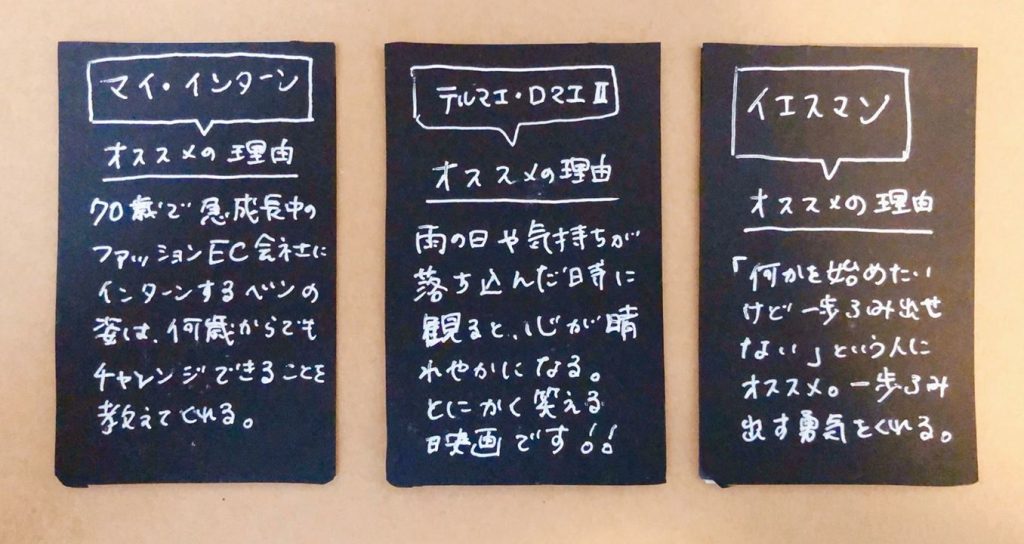 マイ・インターン
オススメの理由
70歳で急成長中の
ファッションEC会社に
インターンするベンの
姿は、何歳からでも
チャレンジできることを
教えてくれる。
テルマエ・ロマエⅡ
オススメの理由
雨の日や気持ちが
落ち込んだ時に
観ると、心が晴
れやかになる。
とにかく笑える
映画です!!
イエスマン
オススメの理由
「何かを始めたい
けど一歩ふみ出せ
ない」という人に
オススメ。一歩ふみ
出す勇気をくれる。